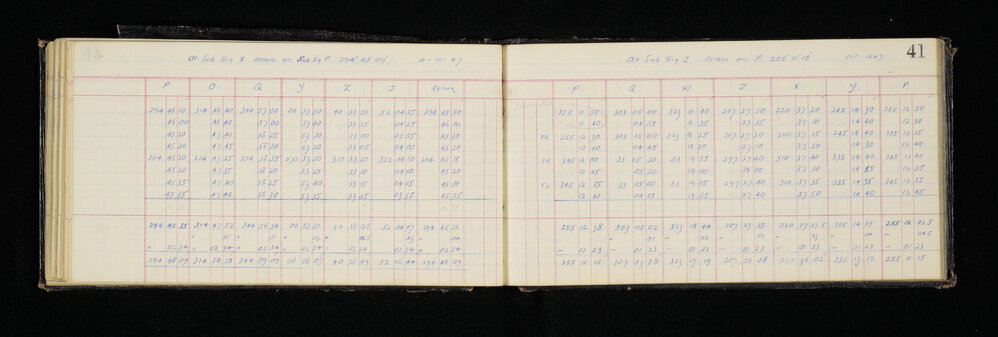 41
At Sub Trig X orien on Sub Trig P. 294° 48' 09" 10-10-47
P O Q Y Z J Return
294 46 10 314 45 40 344 57 00 00 53 50 40 33 20 52 04 25 294 45 50
46 00 45 40 57 03 53 40 33 25 04 25 46 00
45 20 47 40 56 25 53 20 33 00 03 55 45 30
45 20 47 45 56 20 53 20 33 05 04 00 45 20
204 45 20 224 47 25 254 56 35 270 53 20 310 33 20 322 04 10 204 45 15
45 20 47 35 56 20 53 25 33 10 04 00 45 20
45 35 47 40 56 25 53 40 33 15 04 05 45 30
45 35 47 40 56 30 53 35 33 05 03 55 45 25
294 45 35 314 47 53 344 56 34 00 53 31 40 33 15 52 04 07 294 45 31
+ 01 + 01 + 02 + 02.5 + 03 + 04
+ 02 34 + 02 34 + 02 34 + 02 34 + 02 34 + 02 34 + 02 34
294 48 09 314 50 28 344 59 09 00 56 07 40 35 49 52 06 44 294 48 09
At Sub Trig Z orien on P. 255° 11' 15" Oct 1947
P Q W J X Y P
255 11 50 303 05 00 323 18 40 207 27 20 220 37 20 245 14 30 255 12 50
11 40 04 55 18 35 27 35 37 10 14 40 12 30
FR 255 12 30 303 05 00 323 18 25 207 27 20 220 37 15 245 14 40 255 12 25
12 40 04 45 18 20 27 10 37 20 14 30 12 40
FR 345 12 40 33 05 20 53 18 55 297 27 40 310 37 40 335 14 40 345 12 40
12 45 05 20 19 00 28 00 37 30 14 55 12 55
FL 345 12 35 33 05 00 53 19 05 297 27 40 310 37 35 335 14 35 345 12 55
12 40 04 25 18 55 27 40 37 50 14 40 12 45
255 12 38 303 05 02 323 18 44 207 27 33 220 37 27.5 335 14 39 255 12 42.5
- 01 - 02 - 02 - 03 - 04 - 04.5
- 01 23 - 01 23 - 01 23 - 01 23 - 01 23 - 01 23 - 01 23
255 11 15 303 03 38 323 17 19 207 26 08 220 36 02 335 13 12 255 11 15